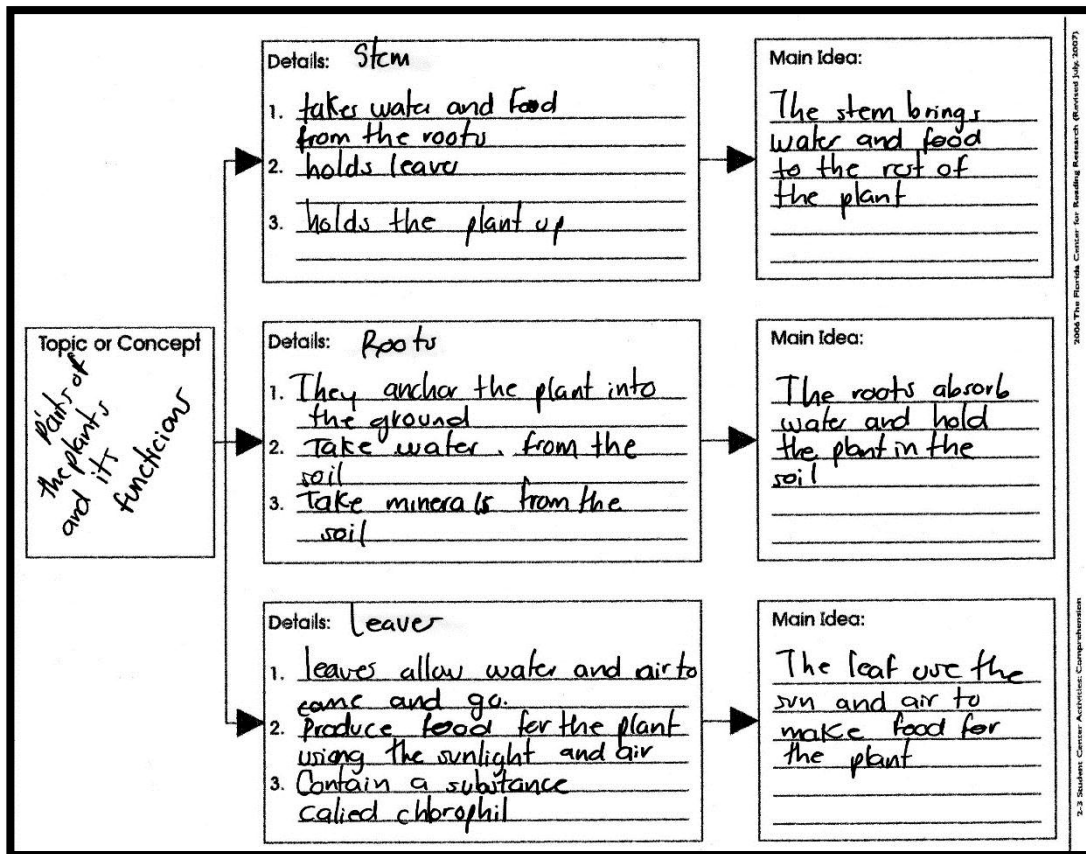 Details: Stem
1. takes water and food
from the roots
2. holds leaves
3. holds the plant up
Main Idea:
The stem brings
water and food
to the rest of
the plant
Topic or Concept
Parts of
the plants
and its
functicians
Details: Roots
1. They anchor the plant into
the ground
2. Take water. from the
soil
3. Take minerals from the
soil
Main Idea:
The roots absorb
water and hold
the plant in the
soil
Details: leaves
1. leaves allow water and air to
come and go.
2. Produce food for the plant
using the sunlight and air
3. Contain a substance
called chlorophil
Main Idea:
The leaf use the
sun and air to
make food for
the plant
2006 The Florida Center for Reading Research (Revised July, 2007)
2-3 Student Center Activities: Comprehension